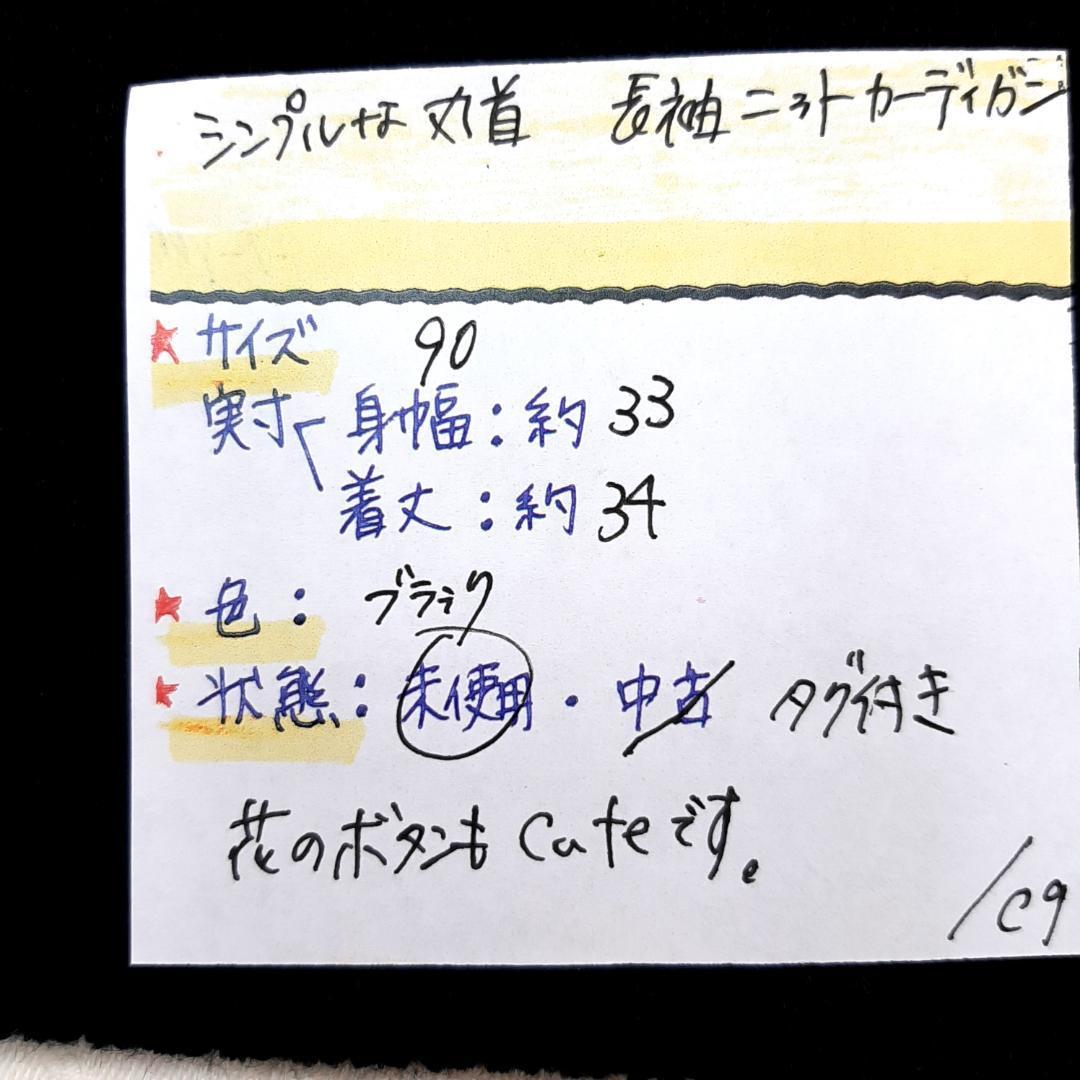 シンプルな丸首 長袖ニットカーディガン
★サイズ 90
実寸 身幅:約33
着丈:約34
★色: ブラック
★状態:未使用・中古 タグ付き
花のボタンも Cuteです。
/C9